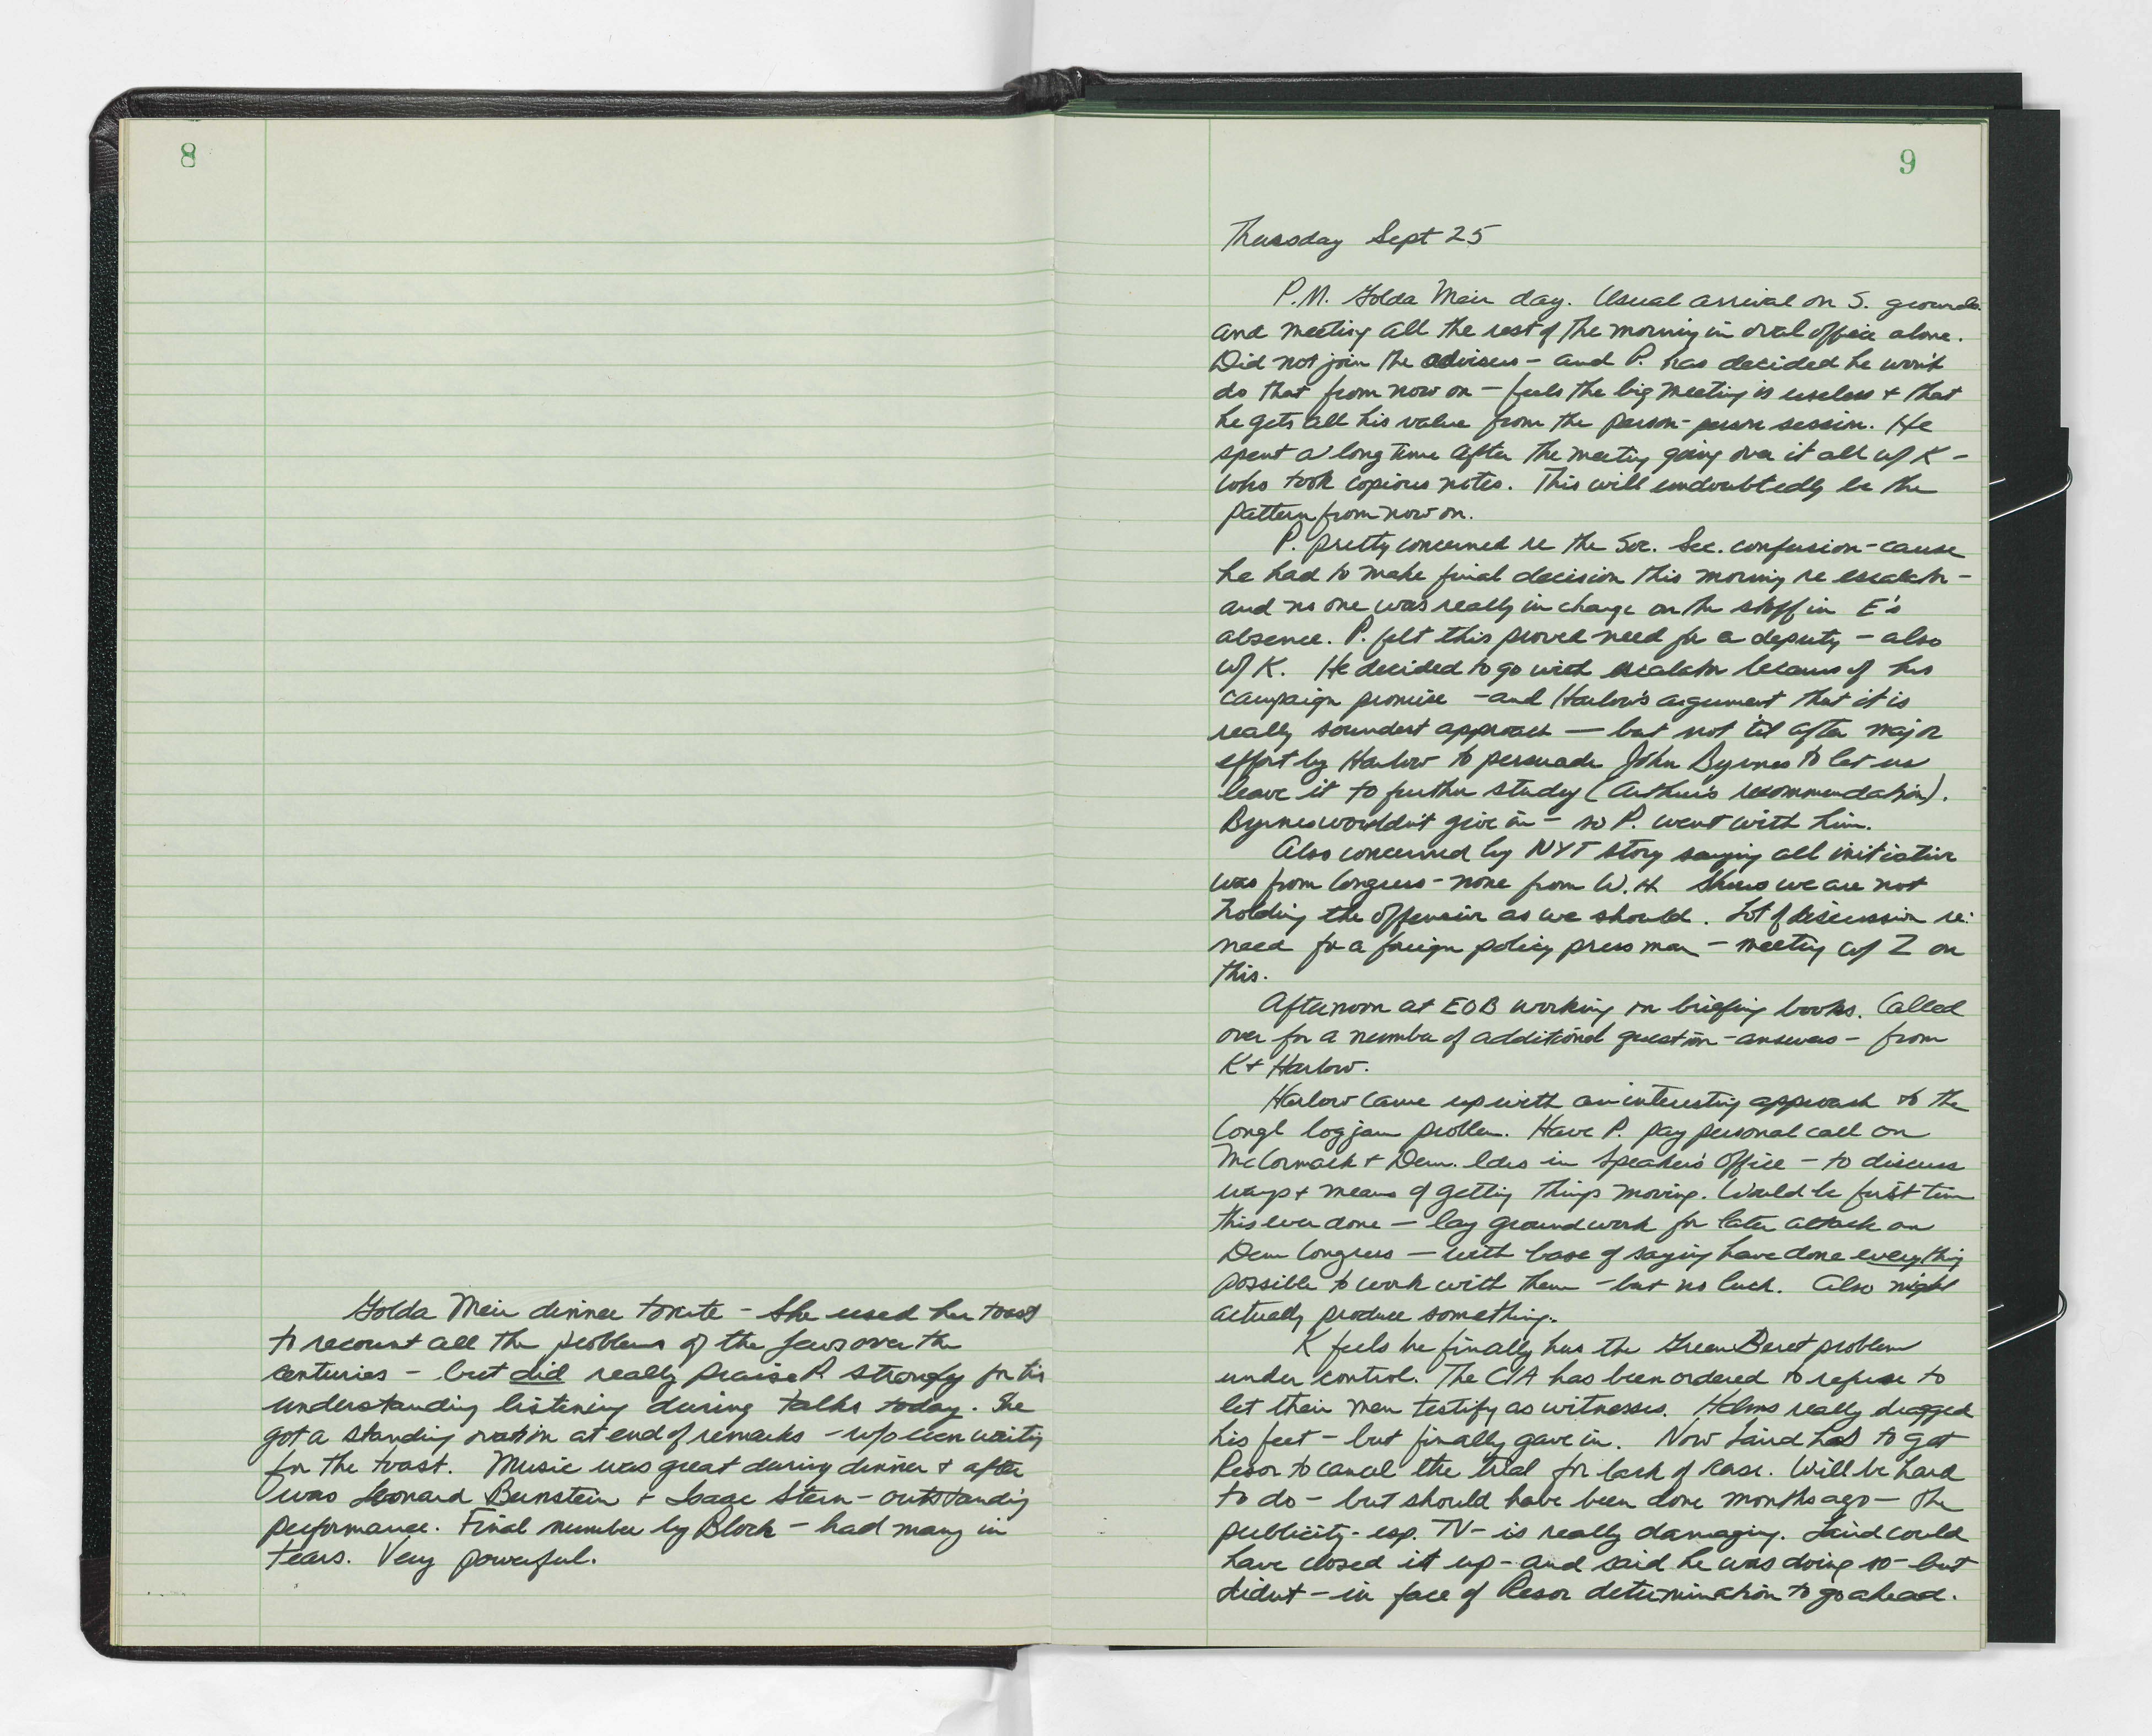 8
Golda Meir dinner tonite - She used her toast
to recount all the problems of the Jews over the
centuries - but did really praise P. strongly for his
understanding listening during talks today. She
got a standing ovation at end of remarks - w/o even waiting
for the toast. Music was great during dinner + after
was Leonard Bernstein + Isaac Stern - outstanding
performance. Final number by Bloch - had many in
tears. Very powerful.
9
Thursday Sept 25
P.M. Golda Meir day. Usual arrival on S. grounds
and meeting all the rest of the morning in oval office alone.
Did not join the advisers - and P. has decided he won't
do that from now on - feels the big meeting is useless + that
he gets all his value from the person-person session. He
spent a long time after the meeting going over it all w/ K -
who took copious notes. This will undoubtedly be the
pattern from now on.
P. pretty concerned re the Soc. Sec. confusion - cause
he had to make final decision this morning re escalator -
and no one was really in charge on the staff in E's
absence. P. felt this proved need for a deputy - also
w/ K. He decided to go with escalator because of his
campaign promise - and Harlow's argument that it is
really soundest approach - but not 'til after major
effort by Harlow to persuade John Byrnes to let us
leave it to further study (Arthur's recommendation).
Byrnes wouldn't give in - so P. went with him.
Also concerned by NYT story saying all initiative
was from Congress - none from W.H. Shows we are not
holding the offensive as we should. Lot of discussion re:
need for a foreign policy press man - meeting w/ Z on
this.
Afternoon at EOB working on briefing books. Called
over for a number of additional question-answers - from
K + Harlow.
Harlow came up with an interesting approach to the
Congl log jam problem. Have P. pay personal call on
McCormack + Dem. ldrs in Speaker's Office - to discuss
ways + means of getting things moving. Would be first time
this ever done - lay groundwork for later attack on
Dem Congress - with base of saying have done everything
possible to work with them - but no luck. Also might
actually produce something.
K feels he finally has the Green Beret problem
under control. The CIA has been ordered to refuse to
let their men testify as witnesses. Helms really dragged
his feet - but finally gave in. Now Laird has to get
Resor to cancel the trial for lack of case. Will be hard
to do - but should have been done months ago - the
publicity - esp. TV - is really damaging. Laird could
have closed it up - and said he was doing so - but
didn't - in face of Resor determination to go ahead.